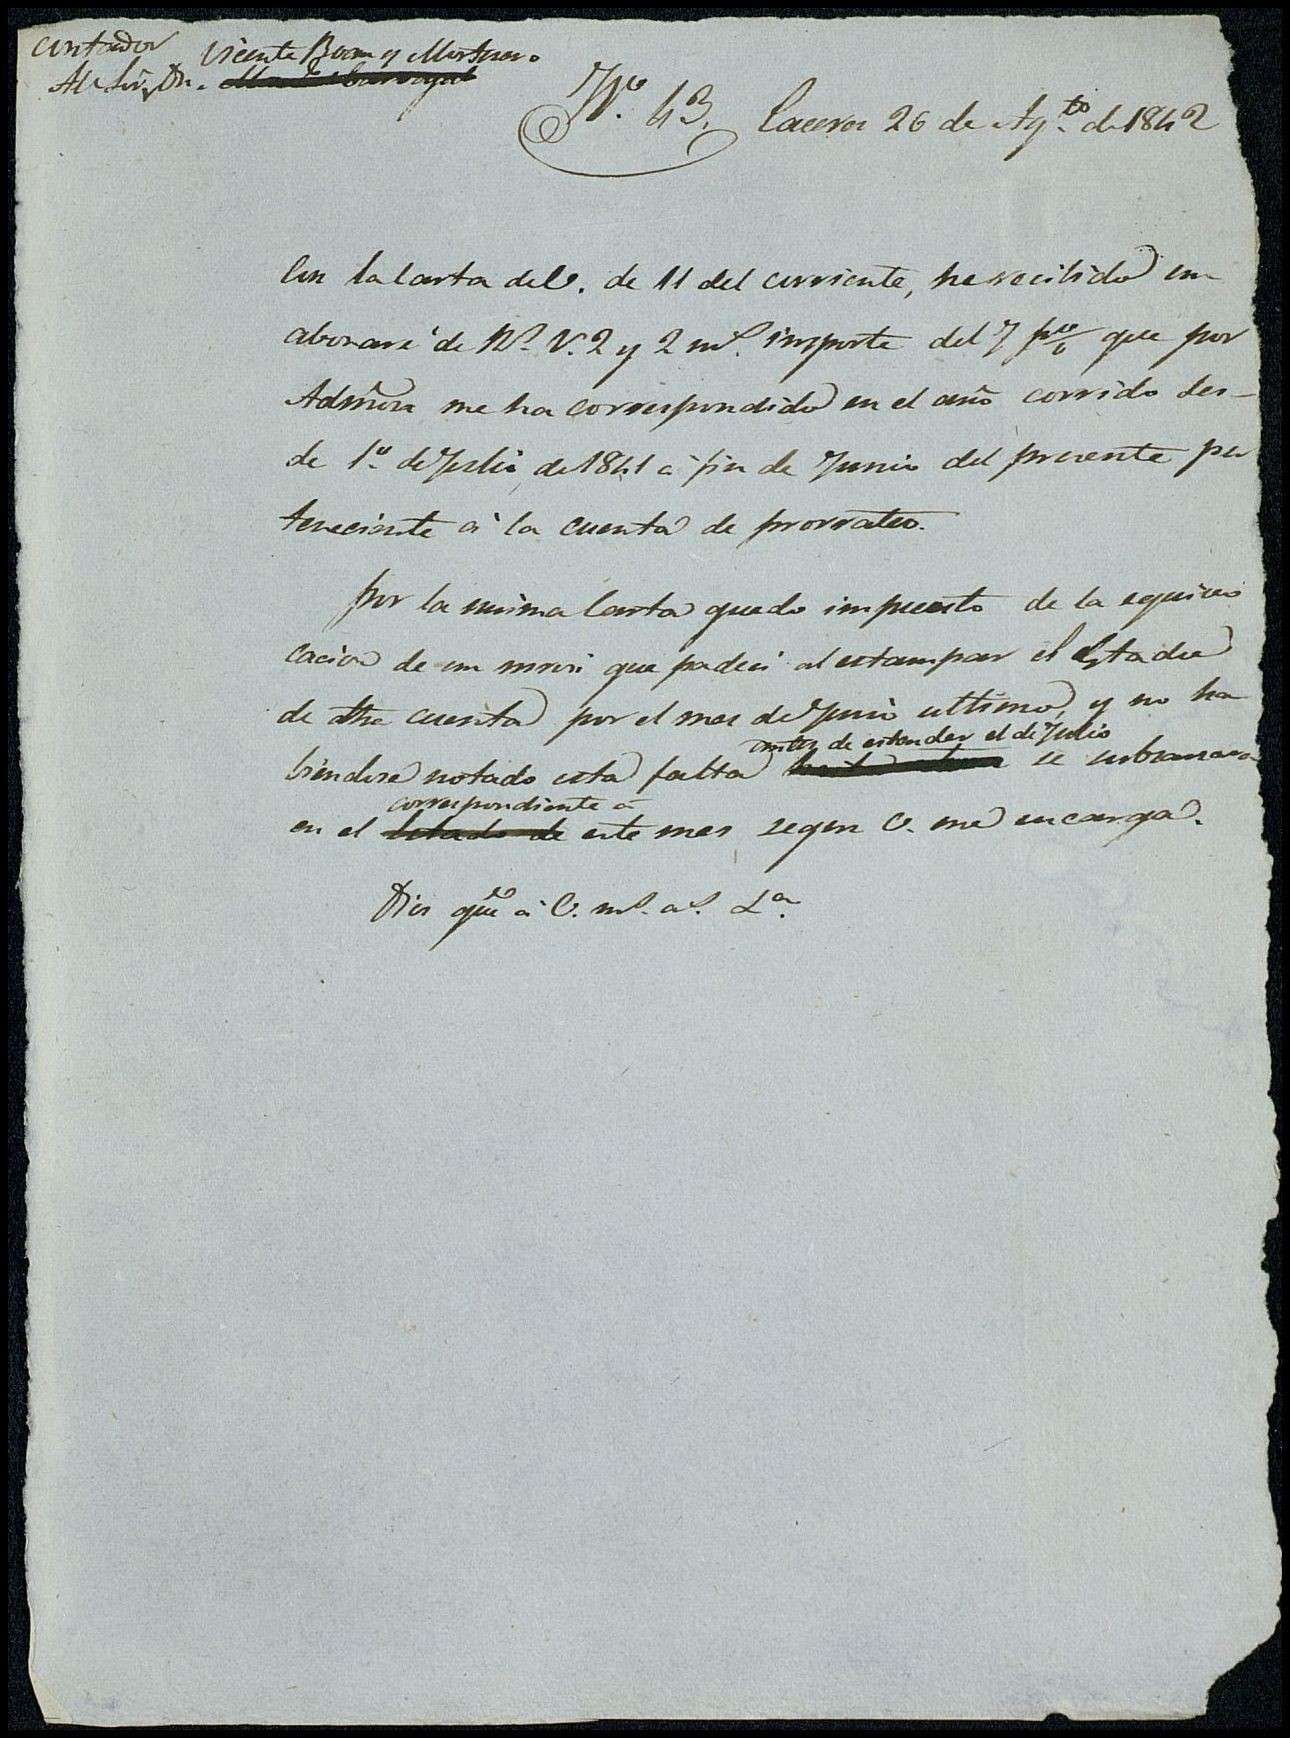 contador Vicente y
Al Sr. Dn.
No. 43. Caceres 26 de Agto. de 1842
Con la Carta de V. de 11 del corriente, he recibido un
abonaré de Rs. Vn. 2 y 2 ms. importe del 7 p% que por
Admon me ha correspondido en el año corrido des-
de 1o. de Julio de 1841 a fin de Junio del presente per
teneciente á la cuenta de prorrateo.
por la misma Carta quedo impuesto de la equivo
cacion de un mrvi que padeci al estampar el Estado
de dha cuenta por el mes de Junio ultimo, y no ha
antes de estender el de Julio
biendose notado esta falta se subsanara
correspondiente á
en el Estado de este mes segun V. me encarga.
Dios gue á V. ms. as. La.